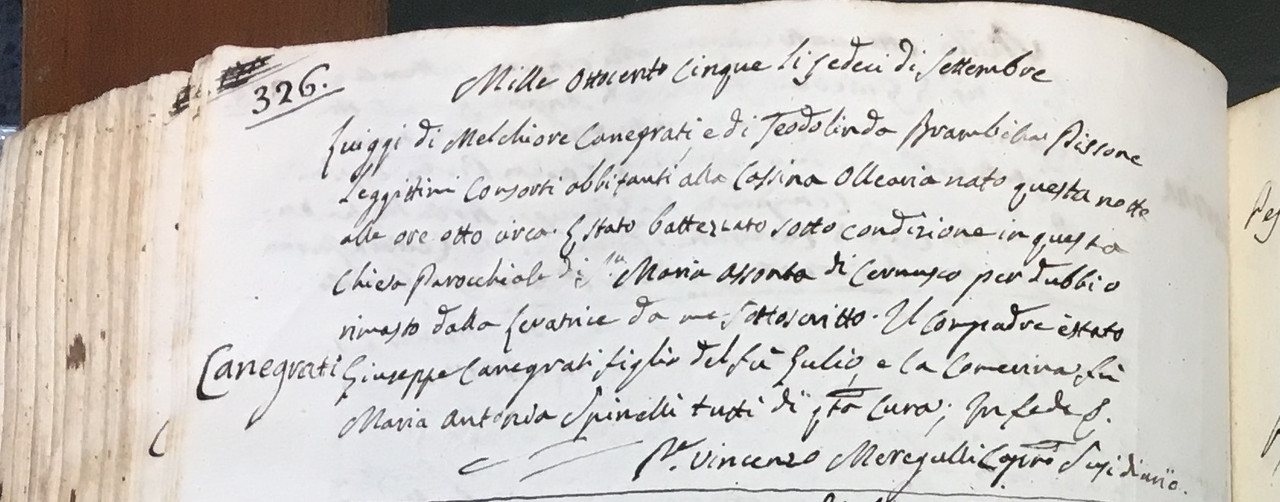 326.
Mille Ottocento Cinque li sedeci di Settembre
Luiggi di Melchiore Canegrati e di Teodolinda Brambilla Pissone
Leggittimi Consorti abbitanti alla Cassina Ollearia nato questa notte
alle ore otto circa. È stato battezzato sotto condizione in questa
Chiesa Parochiale di Sta Maria Assonta di Cernusco per dubbio
rimasto dalla Levatrice da me sottoscritto. Il Compadre è stato
Canegrati
Giuseppe Canegrati figlio del fù Gulio, e la Comerina fù
Maria Antonia Spinelli tutti di qta Cura; In fede
Pr. Vincenzo Meregalli